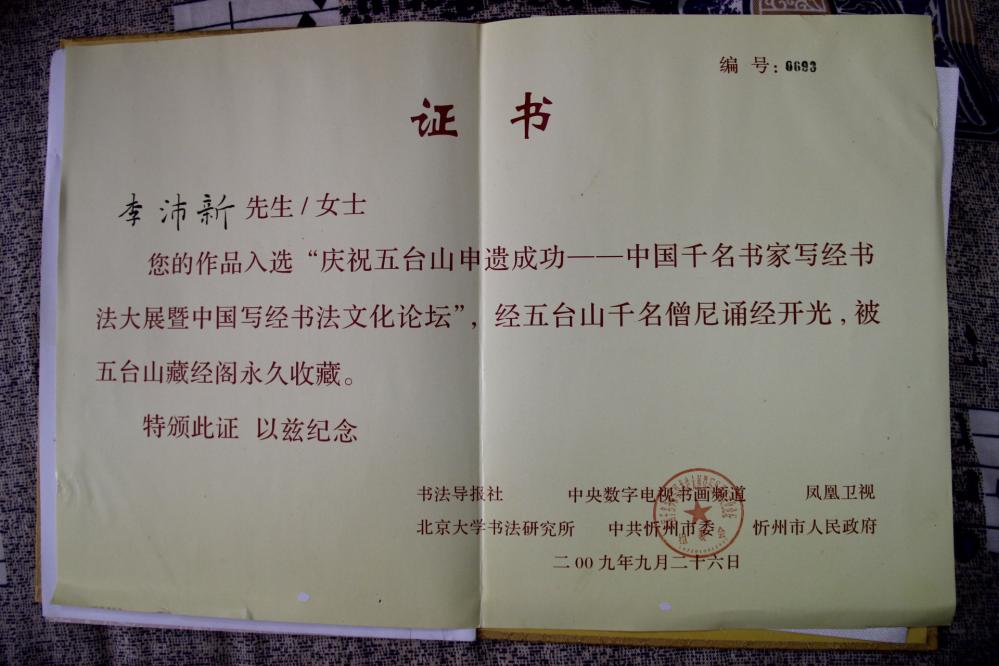 编 号：6693
证 书
李沛新 先生 / 女士
您的作品入选“庆祝五台山申遗成功——中国千名书家写经书
法大展暨中国写经书法文化论坛”，经五台山千名僧尼诵经开光，被
五台山藏经阁永久收藏。
特颁此证 以兹纪念
书法导报社 中央数字电视书画频道 凤凰卫视
北京大学书法研究所 中共忻州市委 忻州市人民政府
二00九年九月二十六日